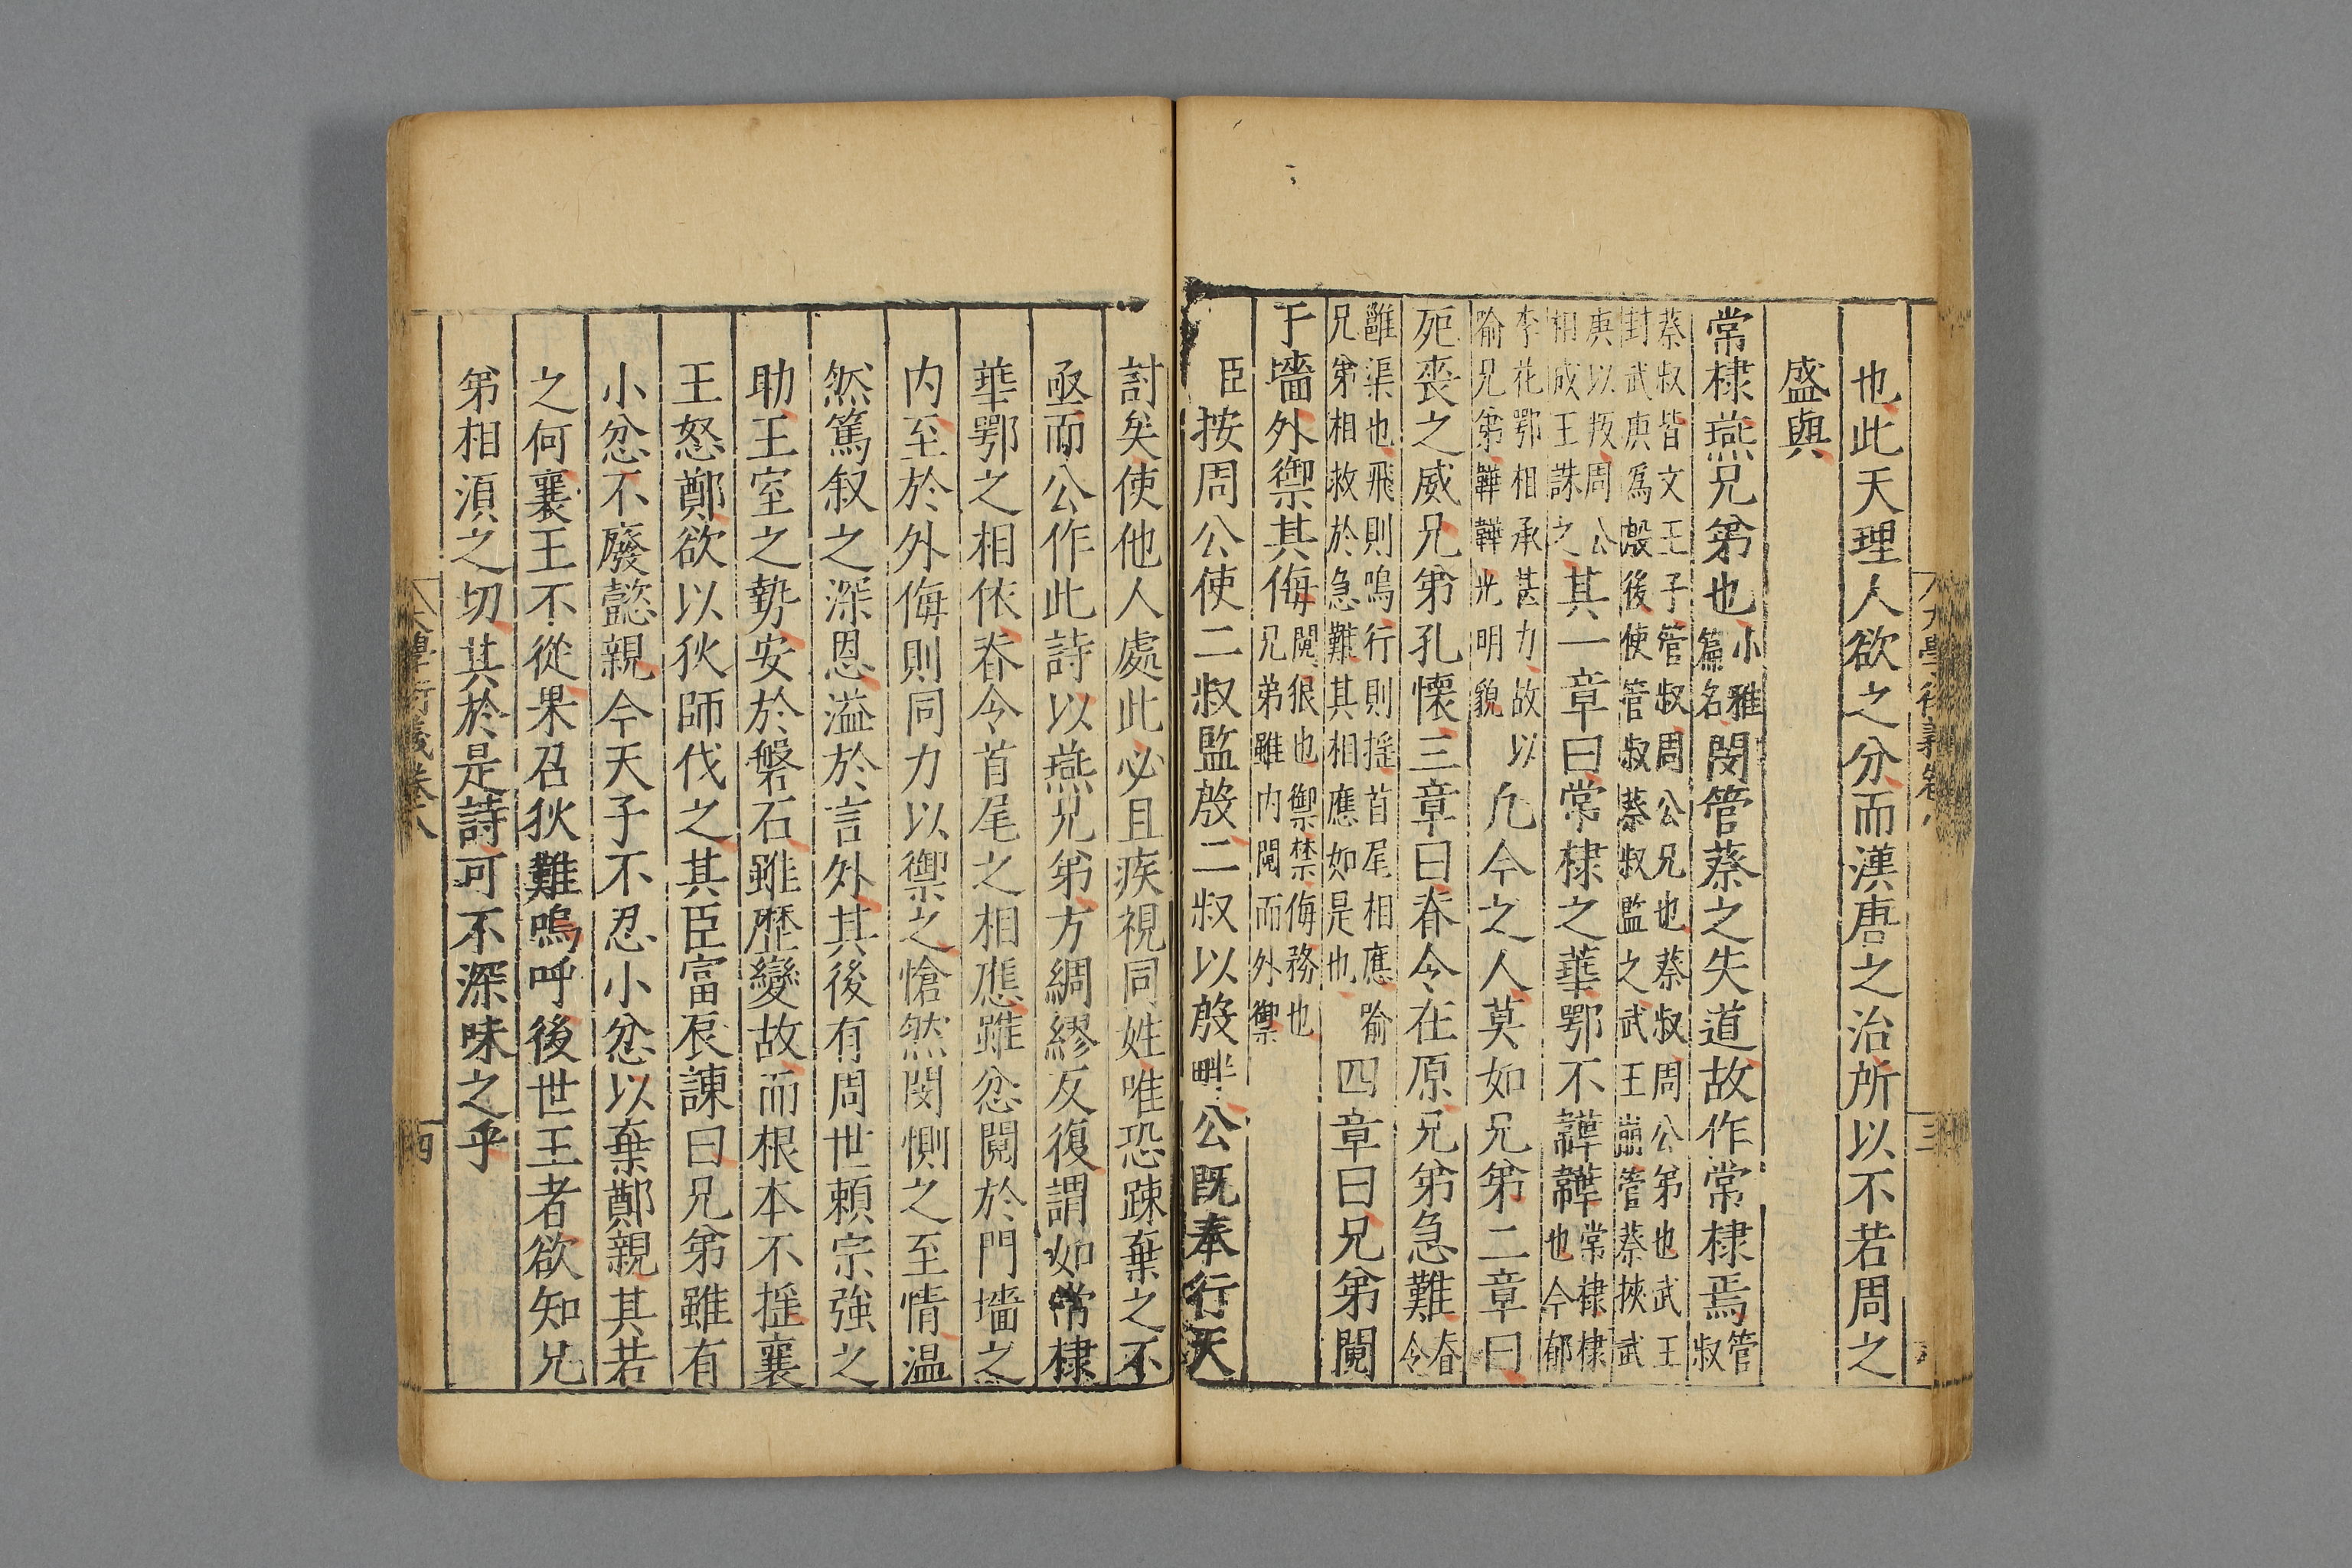 大學衍義卷八
三
也此天理人欲之分而漢唐之治所以不若周之
盛與
常棣燕兄弟也小雅篇名閔管蔡之失道故作常棣焉管叔
蔡叔皆文王子管叔周公兄也蔡叔周公弟也武王
封武庚爲殷後使管叔蔡叔監之武王崩管蔡挾武
庚以叛周公
相成王誅之其一章曰常棣之華鄂不韡韡常棣棣也今郁
李花鄂相承甚力故以
喻兄弟韡韡光明貌凡今之人莫如兄弟二章曰
死喪之威兄弟孔懷三章曰脊令在原兄弟急難脊令
雝渠也飛則鳴行則揺首尾相應喻
兄弟相救於急難其相應如是也四章曰兄弟鬩
于墻外禦其侮鬩狠也禦禁侮務也
兄弟雖内鬩而外禦
臣按周公使二叔監殷二叔以殷畔公既奉行天
討矣使他人處此必且疾視同姓唯恐踈棄之不
亟而公作此詩以燕兄弟方綢繆反復謂如常棣
華鄂之相依脊令首尾之相應雖忿鬩於門墻之
内至於外侮則同力以禦之愴然閔惻之至情温
然篤叙之深恩溢於言外其後有周世頼宗強之
助王室之勢安於磐石雖歴變故而根本不揺襄
王怒鄭欲以狄師伐之其臣富辰諫曰兄弟雖有
小忿不廢懿親今天子不忍小忿以棄鄭親其若
之何襄王不從果召狄難嗚呼後世王者欲知兄
弟相湏之切其於是詩可不深味之乎
大學衍義卷八
四